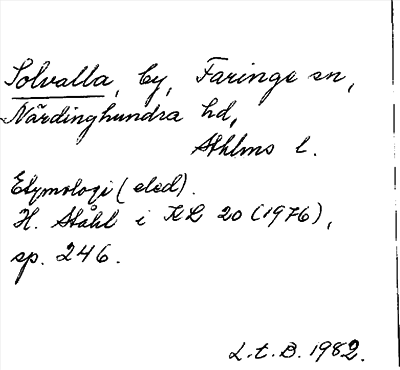 Solvalla, by, Faringe sn,
Närdinghundra hd,
Sthlms l.
Etymologi (eled).
H. Ståhl i KL 20 (1976),
sp. 246.
L.t.B. 1982.